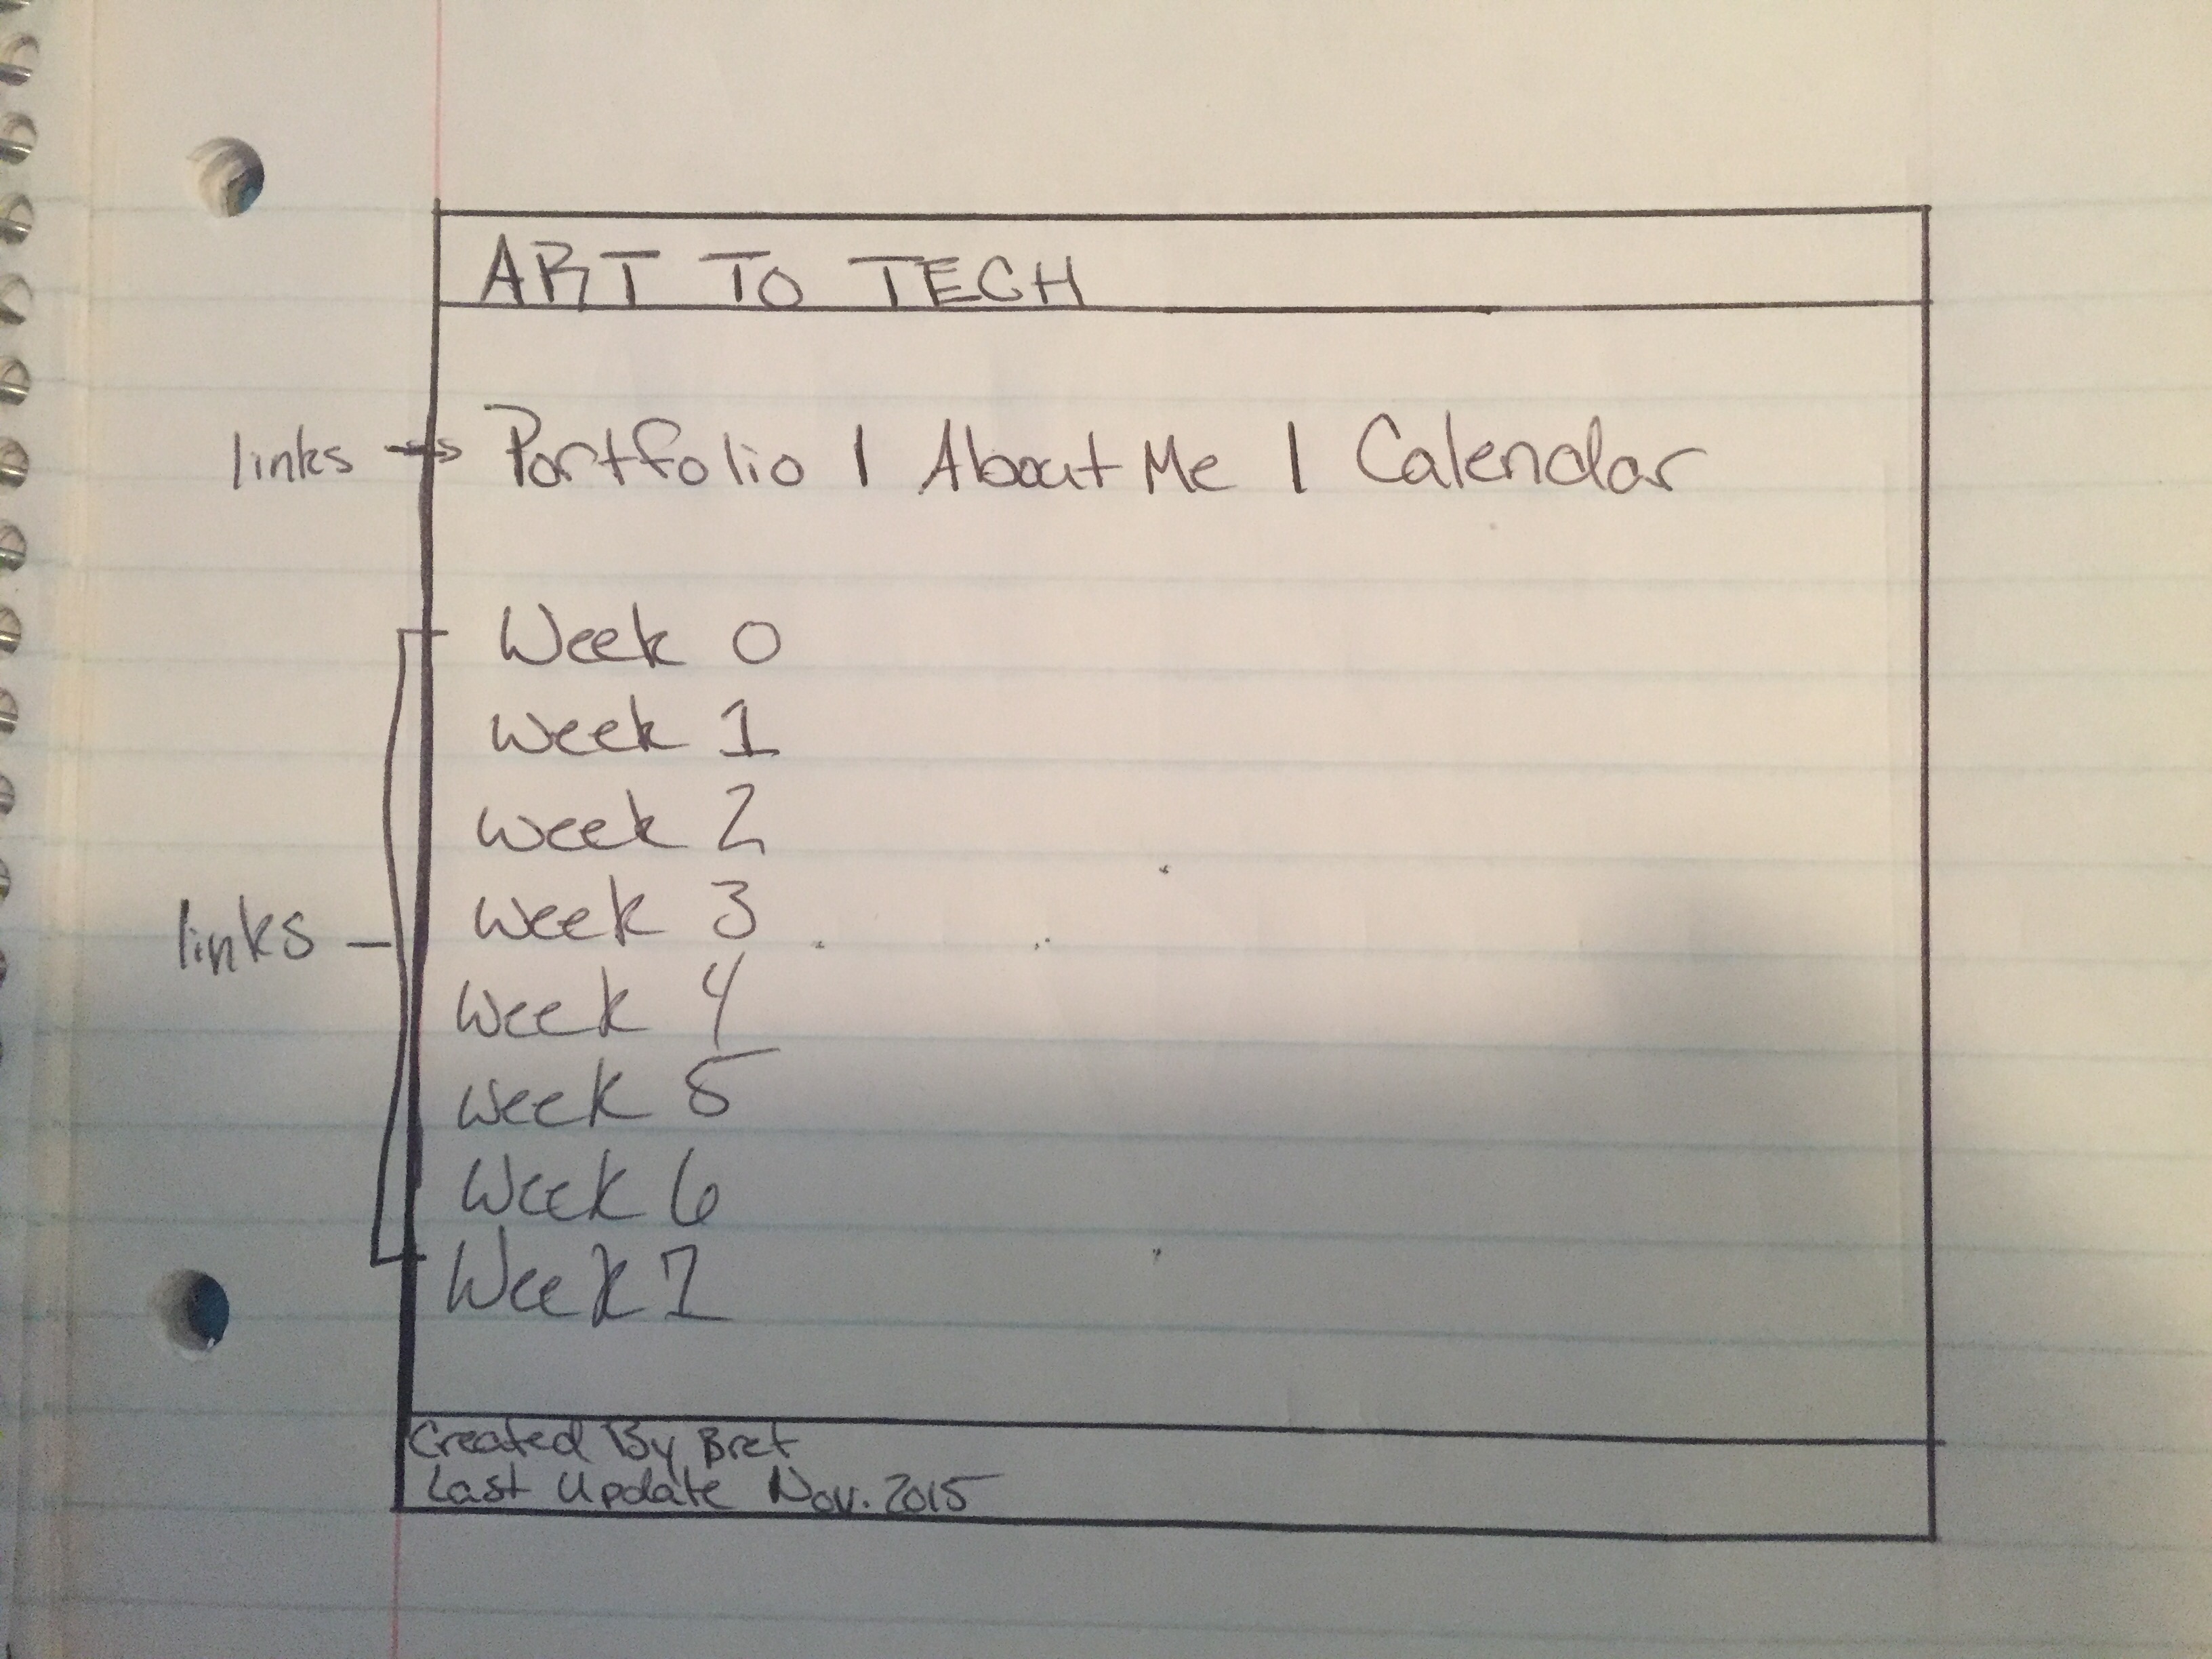 ART TO TECH
links → Portfolio | About Me | Calendar
Week 0
Week 1
Week 2
Week 3
links
Week 4
Week 5
Week 6
Week 1
Created By Bret
Last Update Nov. 2015